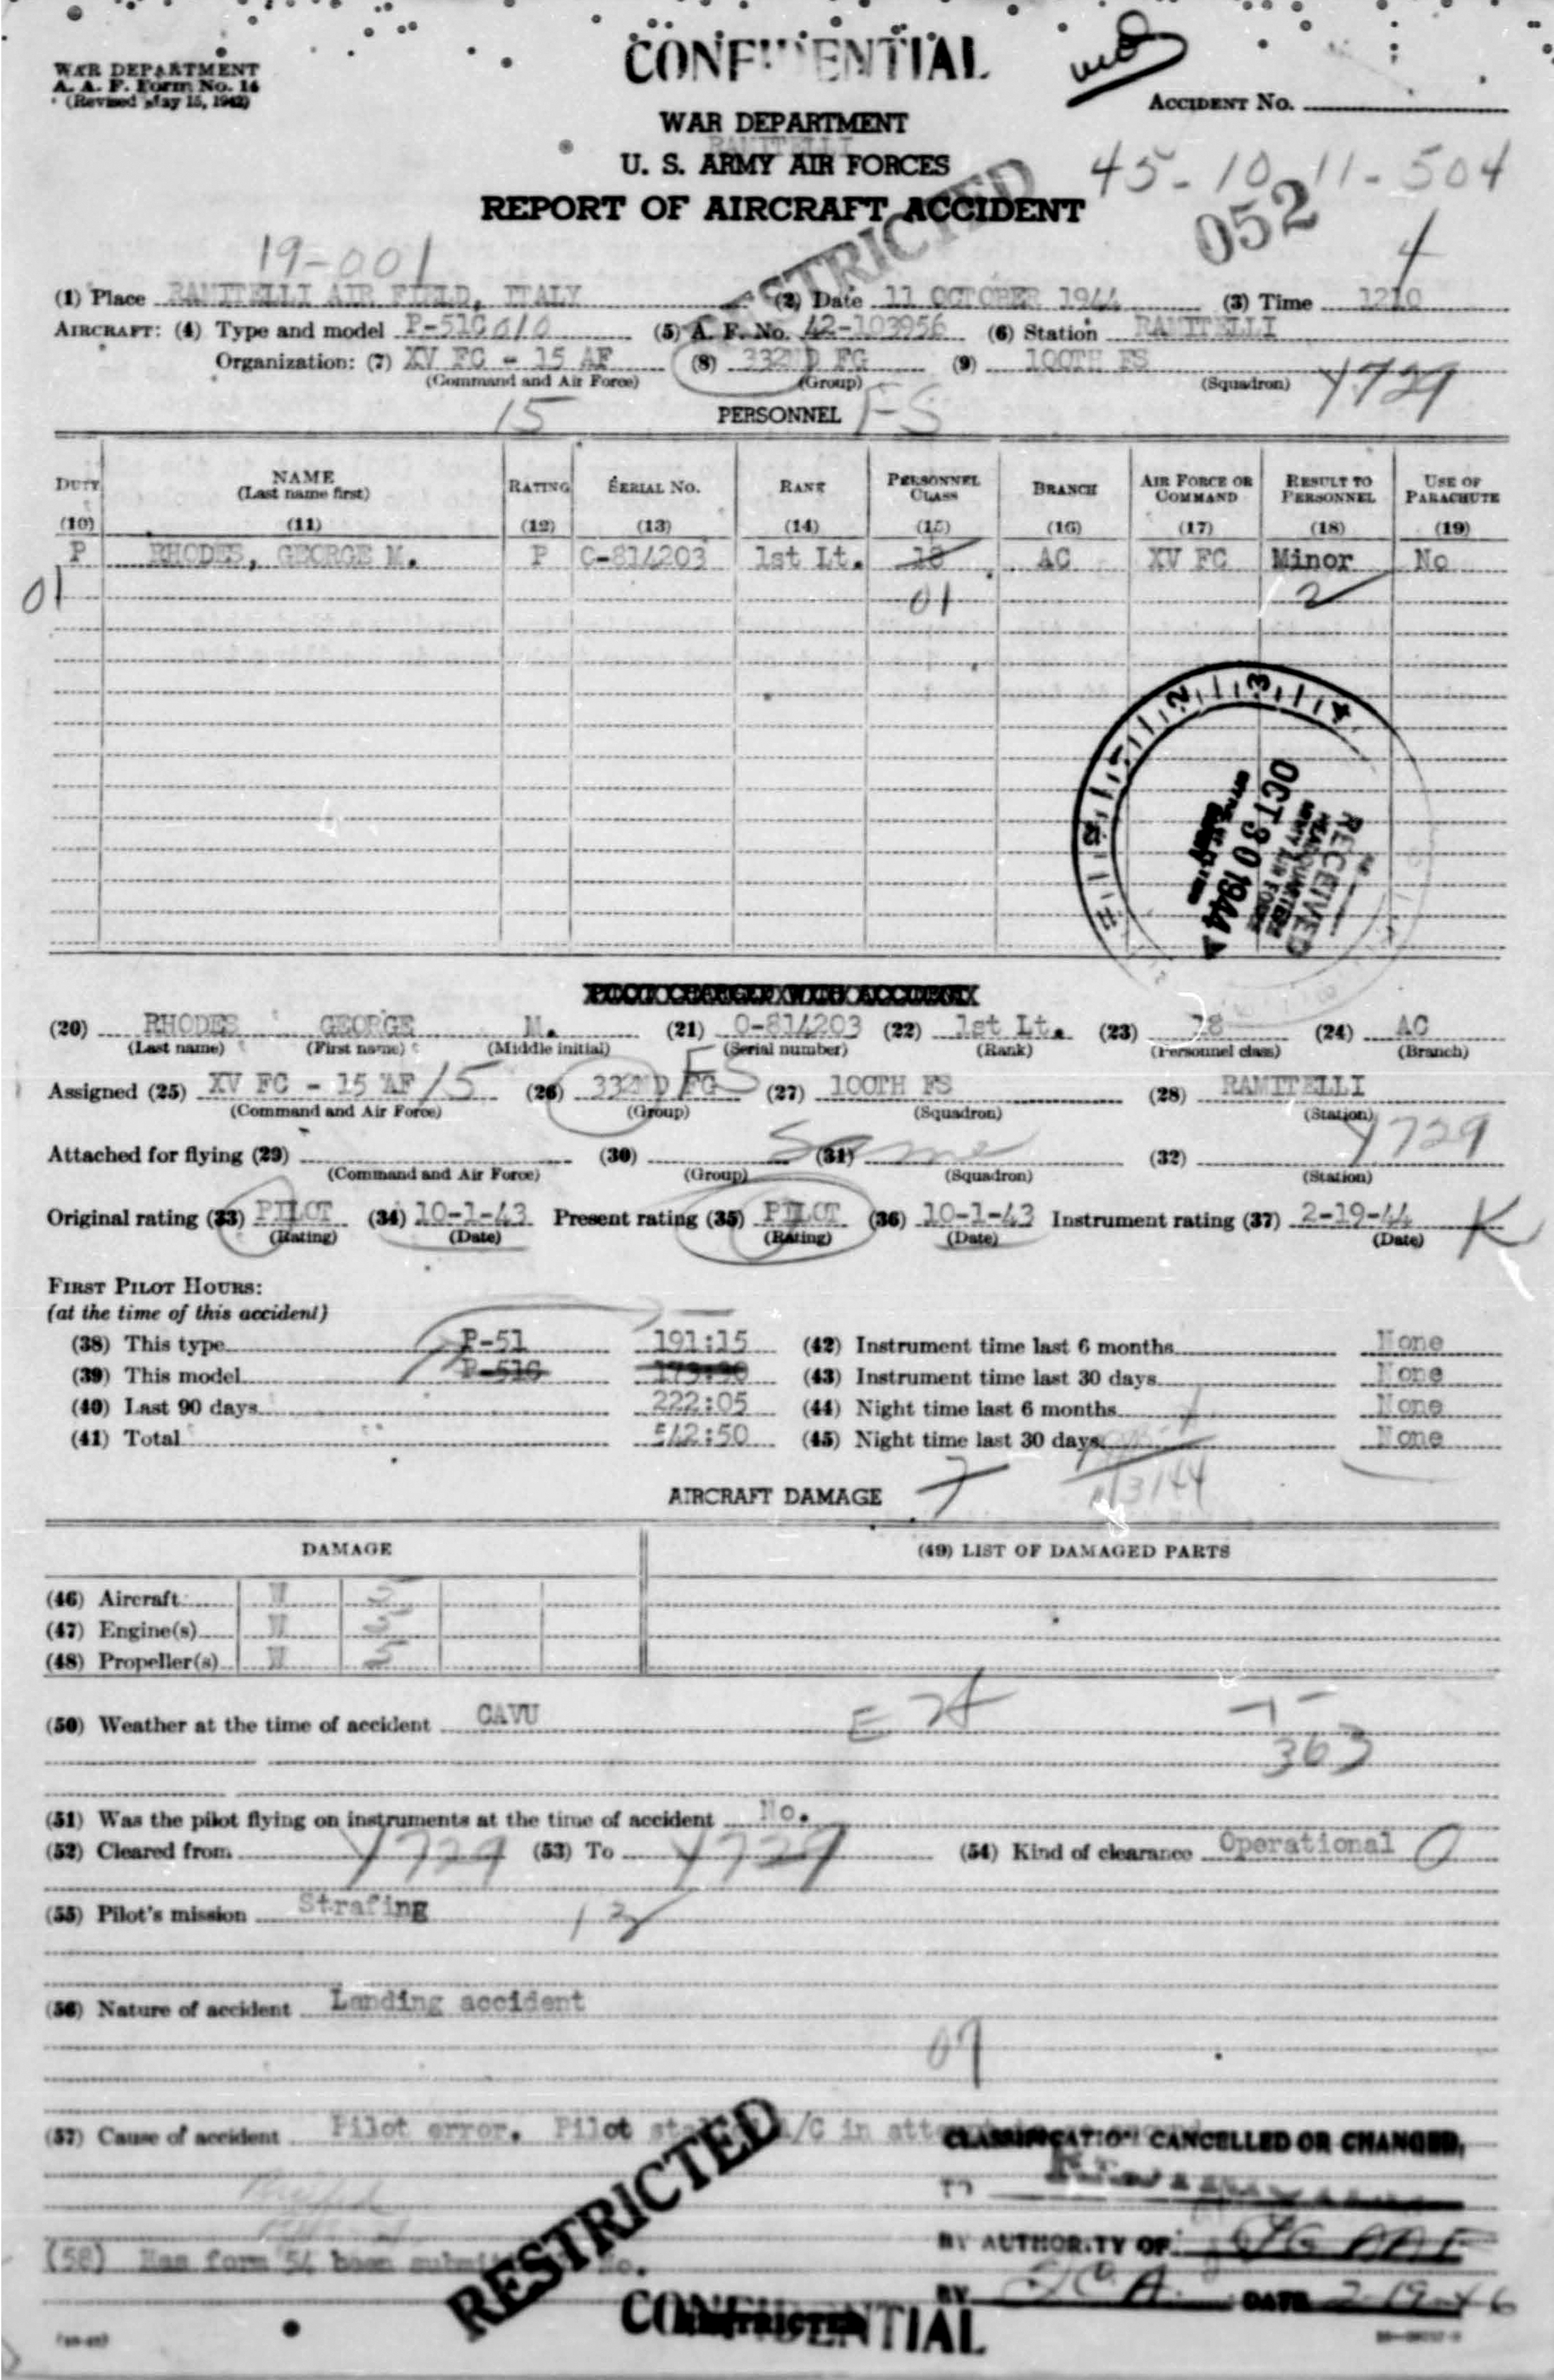 WAR DEPARTMENT
A. A. F. Form No. 14
(Revised May 15, 1942)
CONFIDENTIAL
ACCIDENT No.
WAR DEPARTMENT
U. S. ARMY AIR FORCES
45-10-11-504
REPORT OF AIRCRAFT ACCIDENT
RESTRICTED
052
4
19-001
(1) Place RAMITELLI AIR FIELD, ITALY (2) Date 11 OCTOBER 1944 (3) Time 1210
AIRCRAFT: (4) Type and model P-51C 010 (5) A. F. No. 42-103956 (6) Station RAMITELLI
Organization: (7) XV FC - 15 AF (8) 332ND FG (9) 100TH FS
(Command and Air Force) (Group) (Squadron) Y729
15 PERSONNEL FS
DUTY NAME (Last name first) RATING SERIAL No. RANK PERSONNEL CLASS BRANCH AIR FORCE OR COMMAND RESULT TO PERSONNEL USE OF PARACHUTE
(10) (11) (12) (13) (14) (15) (16) (17) (18) (19)
P RHODES, GEORGE M. P O-814203 1st Lt. 18 AC XV FC Minor No
01 01 2
RECEIVED
OCT 30 1944
HEADQUARTERS
ARMY AIR FORCES
PILOT CHARGED WITH ACCIDENT
(20) RHODES GEORGE M. (21) O-814203 (22) 1st Lt. (23) 18 (24) AC
(Last name) (First name) (Middle initial) (Serial number) (Rank) (Personnel class) (Branch)
Assigned (25) XV FC - 15 AF 15 (26) 332ND FG FS (27) 100TH FS (28) RAMITELLI
(Command and Air Force) (Group) (Squadron) (Station)
Y729
Attached for flying (29) (30) Same (31) (32)
(Command and Air Force) (Group) (Squadron) (Station)
Original rating (33) PILOT (34) 10-1-43 Present rating (35) PILOT (36) 10-1-43 Instrument rating (37) 2-19-44 K
(Rating) (Date) (Rating) (Date) (Date)
FIRST PILOT HOURS:
(at the time of this accident)
(38) This type P-51 191:15 (42) Instrument time last 6 months None
(39) This model P-51C (43) Instrument time last 30 days None
(40) Last 90 days 222:05 (44) Night time last 6 months None
(41) Total 542:50 (45) Night time last 30 days None
AIRCRAFT DAMAGE 7
DAMAGE (49) LIST OF DAMAGED PARTS
(46) Aircraft W 5
(47) Engine(s) W 5
(48) Propeller(s) W 5
(50) Weather at the time of accident CAVU E
363
(51) Was the pilot flying on instruments at the time of accident No.
(52) Cleared from Y729 (53) To Y729 (54) Kind of clearance Operational O
(55) Pilot's mission Strafing 13
(56) Nature of accident Landing accident
09
(57) Cause of accident Pilot error. Pilot A/C in
CLASSIFICATION CANCELLED OR CHANGED,
TO
BY AUTHORITY OF: CG AAF
(58) Has form 54 been No.
RESTRICTED
BY DATE 2-19-46
CONFIDENTIAL